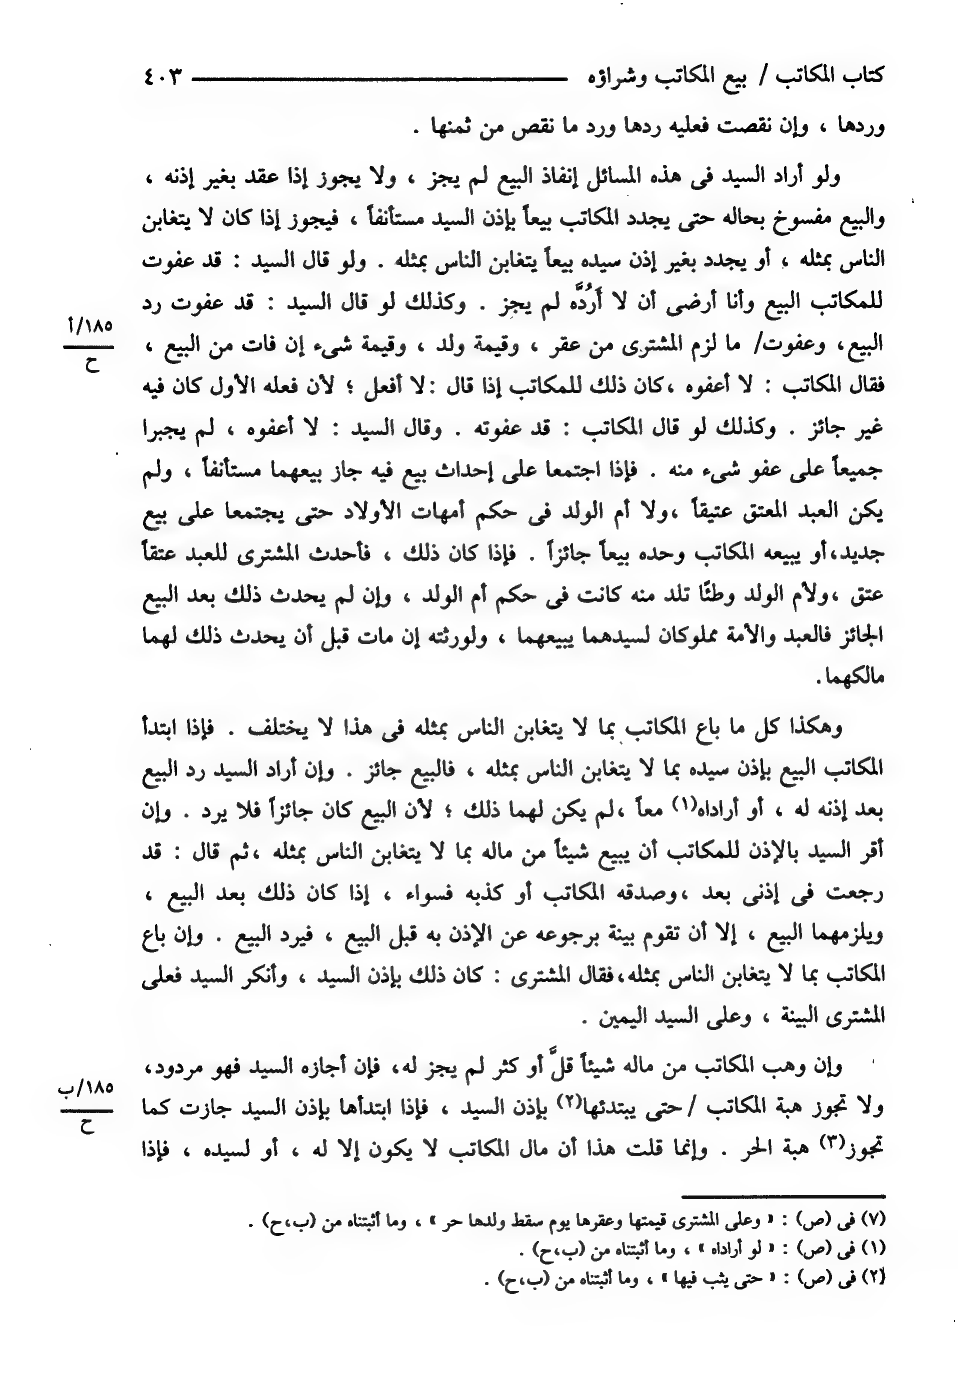 كتاب المكاتب / بيع المكاتب وشراؤه ٤٠٣
وردها ، وإن نقصت فعليه ردها ورد ما نقص من ثمنها .
ولو أراد السيد فى هذه المسائل إنفاذ البيع لم يجز ، ولا يجوز إذا عقد بغير إذنه ،
والبيع مفسوخ بحاله حتى يجدد المكاتب بيعاً بإذن السيد مستأنفاً ، فيجوز إذا كان لا يتغابن
الناس بمثله ، أو يجدد بغير إذن سيده بيعاً يتغابن الناس بمثله . ولو قال السيد : قد عفوت
للمكاتب البيع وأنا أرضى أن لا أَرُدَّه لم يجز . وكذلك لو قال السيد : قد عفوت رد
البيع، وعفوت/ ما لزم المشترى من عقر ، وقيمة ولد ، وقيمة شىء إن فات من البيع ،
١٨٥/أ
ح
فقال المكاتب : لا أعفوه ،كان ذلك للمكاتب إذا قال :لا أفعل ؛ لأن فعله الأول كان فيه
غير جائز . وكذلك لو قال المكاتب : قد عفوته . وقال السيد : لا أعفوه ، لم يجبرا
جميعاً على عفو شىء منه . فإذا اجتمعا على إحداث بيع فيه جاز بيعهما مستأنفاً ، ولم
يكن العبد المعتق عتيقاً ،ولا أم الولد فى حكم أمهات الأولاد حتى يجتمعا على بيع
جديد،أو يبيعه المكاتب وحده بيعاً جائزاً . فإذا كان ذلك ، فأحدث المشترى للعبد عتقاً
عتق ،ولأم الولد وطئًا تلد منه كانت فى حكم أم الولد ، وإن لم يحدث ذلك بعد البيع
الجائز فالعبد والأمة مملوكان لسيدهما يبيعهما ، ولورثته إن مات قبل أن يحدث ذلك لهما
مالكهما.
وهكذا كل ما باع المكاتب بما لا يتغابن الناس بمثله فى هذا لا يختلف . فإذا ابتدأ
المكاتب البيع بإذن سيده بما لا يتغابن الناس بمثله ، فالبيع جائز . وإن أراد السيد رد البيع
بعد إذنه له ، أو أراداه(١) معاً ،لم يكن لهما ذلك ؛ لأن البيع كان جائزاً فلا يرد . وإن
أقر السيد بالإذن للمكاتب أن يبيع شيئاً من ماله بما لا يتغابن الناس بمثله ،ثم قال : قد
رجعت فى إذنى بعد ،وصدقه المكاتب أو كذبه فسواء ، إذا كان ذلك بعد البيع ،
ويلزمهما البيع ، إلا أن تقوم بينة برجوعه عن الإذن به قبل البيع ، فيرد البيع . وإن باع
المكاتب بما لا يتغابن الناس بمثله،فقال المشترى : كان ذلك بإذن السيد ، وأنكر السيد فعلى
المشترى البينة ، وعلى السيد اليمين .
وإن وهب المكاتب من ماله شيئاً قلَّ أو كثر لم يجز له، فإن أجازه السيد فهو مردود،
ولا تجوز هبة المكاتب /حتى يبتدئها(٢) بإذن السيد ، فإذا ابتدأها بإذن السيد جازت كما
١٨٥/ب
ح
تجوز(٣) هبة الحر . وإنما قلت هذا أن مال المكاتب لا يكون إلا له ، أو لسيده ، فإذا
(٧) فى (ص) : « وعلى المشترى قيمتها وعقرها يوم سقط ولدها حر » ، وما أثبتناه من (ب،ح) .
(١) فى (ص) : « لو أراداه » ، وما أثبتناه من (ب،ح) .
(٢) فى (ص) : « حتى يثب فيها » ، وما أثبتناه من (ب،ح) .